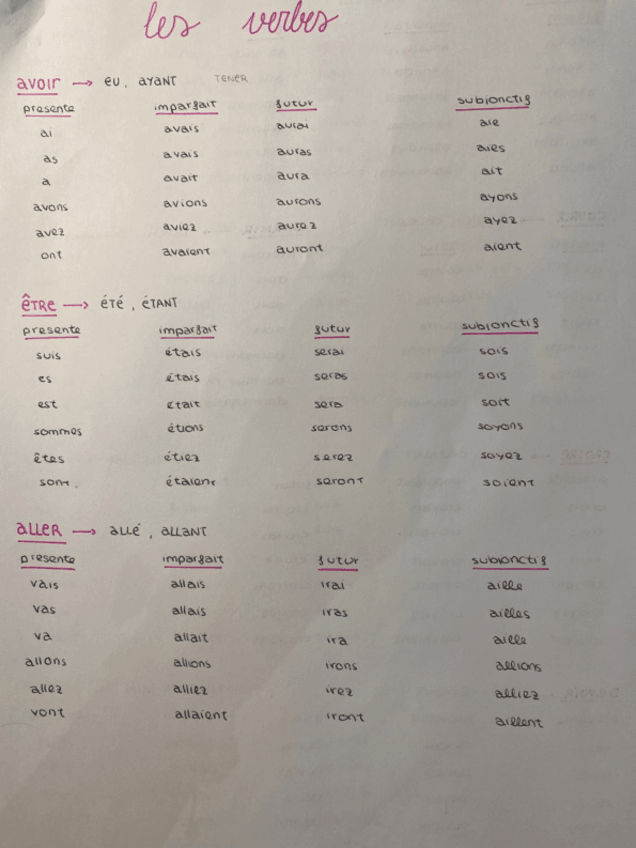 les verbes
avoir → eu, ayant TENER
presente imparfait futur subjonctif
ai avais aurai aie
as avais auras aies
a avait aura ait
avons avions aurons ayons
avez aviez aurez ayez
ont avaient auront aient
être → été, étant
presente imparfait futur subjonctif
suis étais serai sois
es étais seras sois
est était sera soit
sommes étions serons soyons
êtes étiez serez soyez
sont étaient seront soient
aller → allé, allant
presente imparfait futur subionctif
vais allais irai aille
vas allais iras ailles
va allait ira aille
allons allions irons allions
allez alliez irez alliez
vont allaient iront aillent